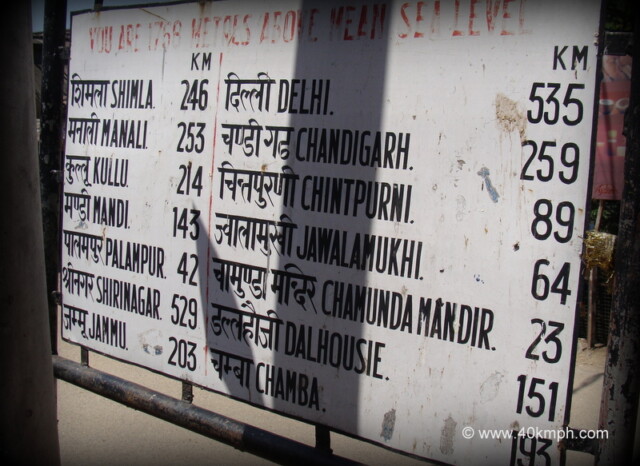 YOU ARE 1768 METRES ABOVE MEAN SEA LEVEL
KM
शिमला SHIMLA. 246
मनाली MANALI. 253
कुल्लू KULLU. 214
मण्डी MANDI. 143
पालमपुर PALAMPUR. 42
श्रीनगर SHIRINAGAR. 529
जम्मू JAMMU. 203
KM
दिल्ली DELHI. 535
चण्डीगढ CHANDIGARH. 259
चिन्तपुरणी CHINTPURNI. 89
ज्वालामुखी JAWALAMUKHI. 64
चामुण्डा मन्दिर CHAMUNDA MANDIR. 23
डल्लहौजी DALHOUSIE. 151
चम्बा CHAMBA. 193
© www.40kmph.com